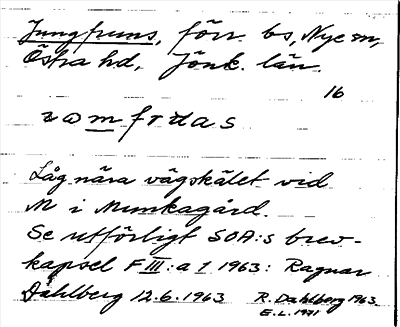 Jungfruns, förr bs, Nye sn,
Östra hd, Jönk. län.
16
Låg nära vägskälet vid
M i Munkagård.
Se utförligt SOA:s brev-
kapsel F III:a 1 1963: Ragnar
Dahlberg 12.6.1963 R. Dahlberg 1963
E.L. 1991